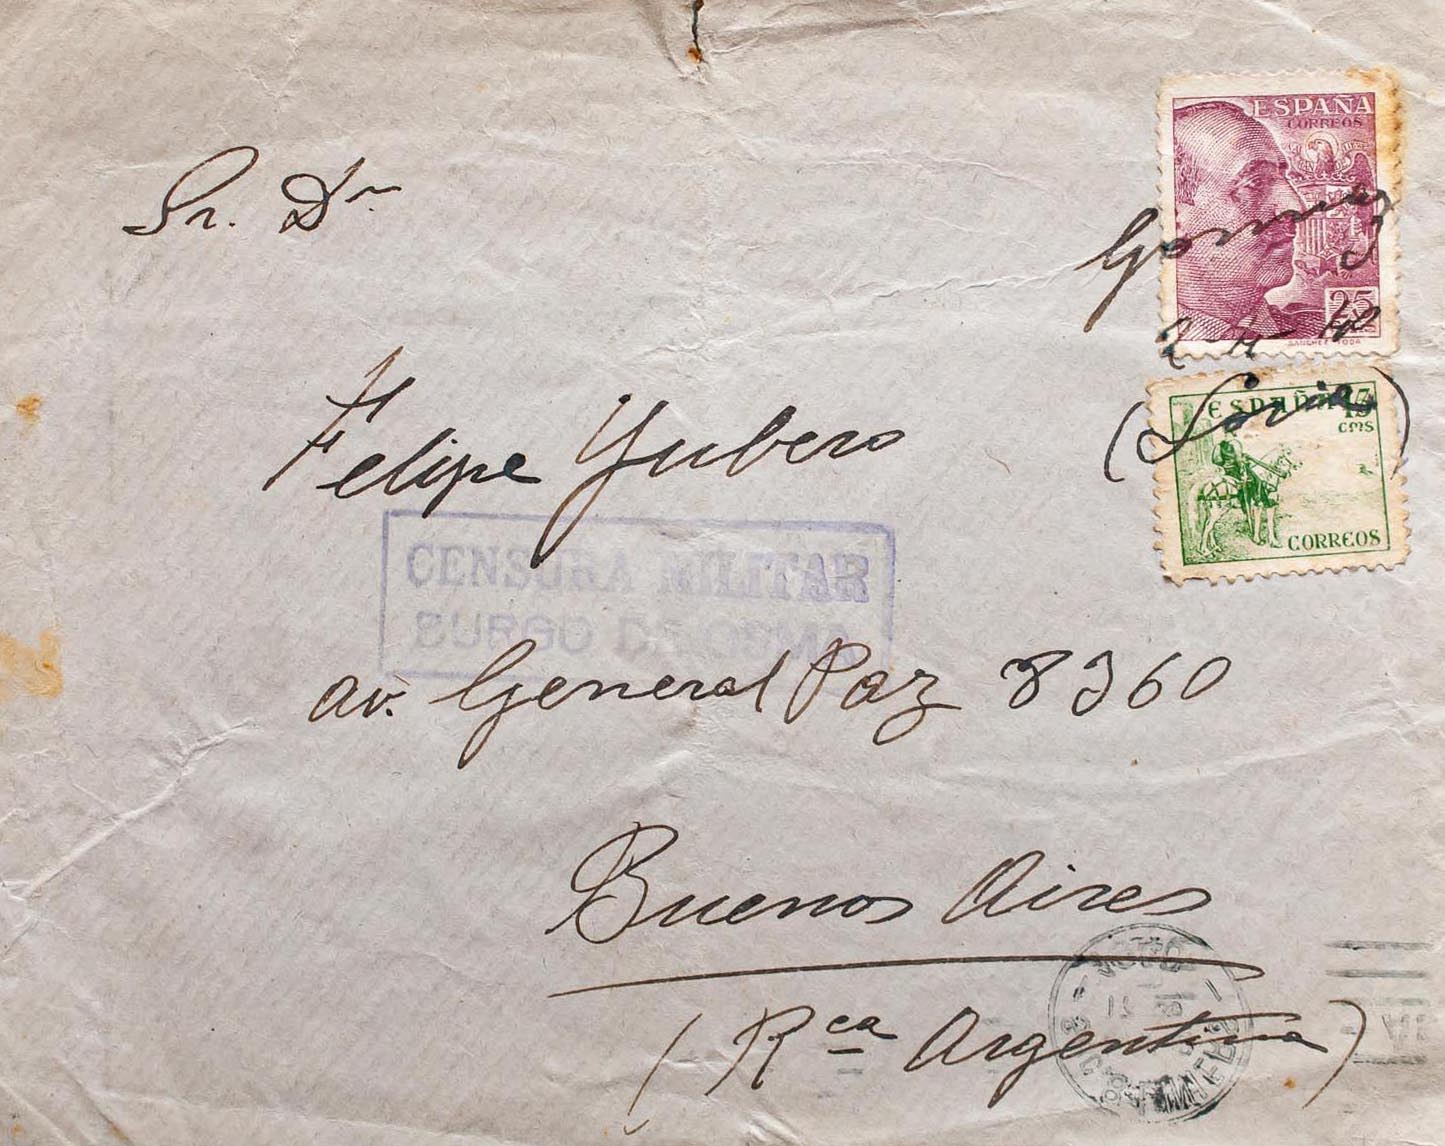 Sr. Dn
Felipe Yubero
av. General Paz 8360
Buenos Aires
(Rca Argentina)
CENSURA MILITAR
BURGO DE OSMA
ESPAÑA
CORREOS
25
SANCHEZ TODA
Gormaz
(Soria)
ESPAÑA 15
cms
CORREOS